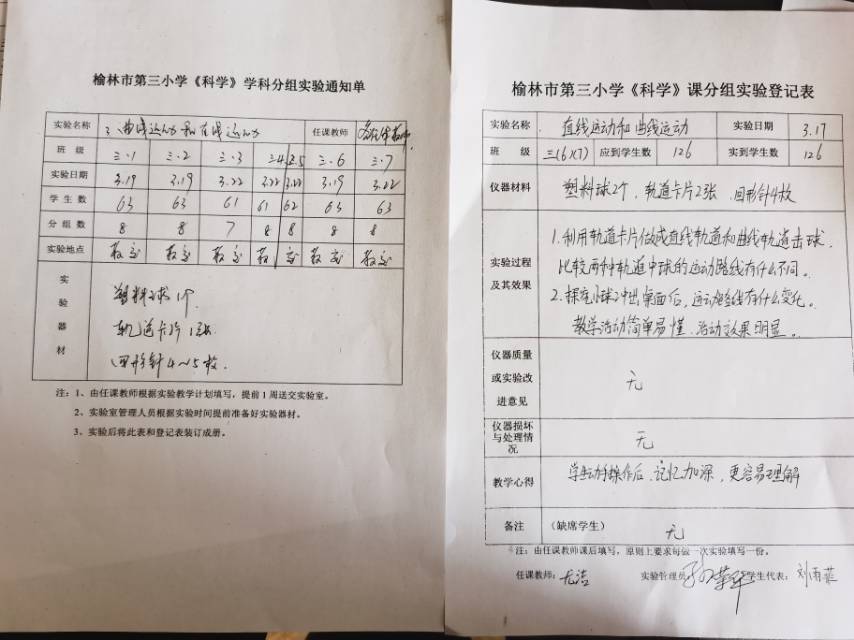 榆林市第三小学《科学》学科分组实验通知单
实验名称 3、曲线运动和直线运动 任课教师
班 级 三.1 三.2 三.3 三.4 三.5 三.6 三.7
实验日期 3.19 3.19 3.22 3.22 3.22 3.19 3.22
学 生 数 63 63 61 61 62 63 63
分 组 数 8 8 7 8 8 8 8
实验地点 教室 教室 教室 教室 教室 教室
实验器材
塑料球1个
轨道卡片1张
回形针4~5枚.
注：1、由任课教师根据实验教学计划填写，提前1周送交实验室。
2、实验室管理人员根据实验时间提前准备好实验器材。
3、实验后将此表和登记表装订成册。
榆林市第三小学《科学》课分组实验登记表
实验名称 直线运动和曲线运动 实验日期 3.17
班 级 三(6)(7) 应到学生数 126 实到学生数 126
仪器材料 塑料球2个，轨道卡片2张，回形针4枚
实验过程及其效果
1.利用轨道卡片做成直线轨道和曲线轨道击球.
比较两种轨道中球的运动路线有什么不同。
2.探究小球冲出桌面后，运动路线有什么变化。
教学活动简单易懂，活动效果明显。
仪器质量或实验改进意见 无
仪器损坏与处理情况 无
教学心得 学生动手操作后，记忆加深，更容易理解
备注 （缺席学生） 无
注：由任课教师课后填写，原则上要求每做一次实验填写一份。
任课教师：尤洁 实验管理员： 学生代表：刘雨菲